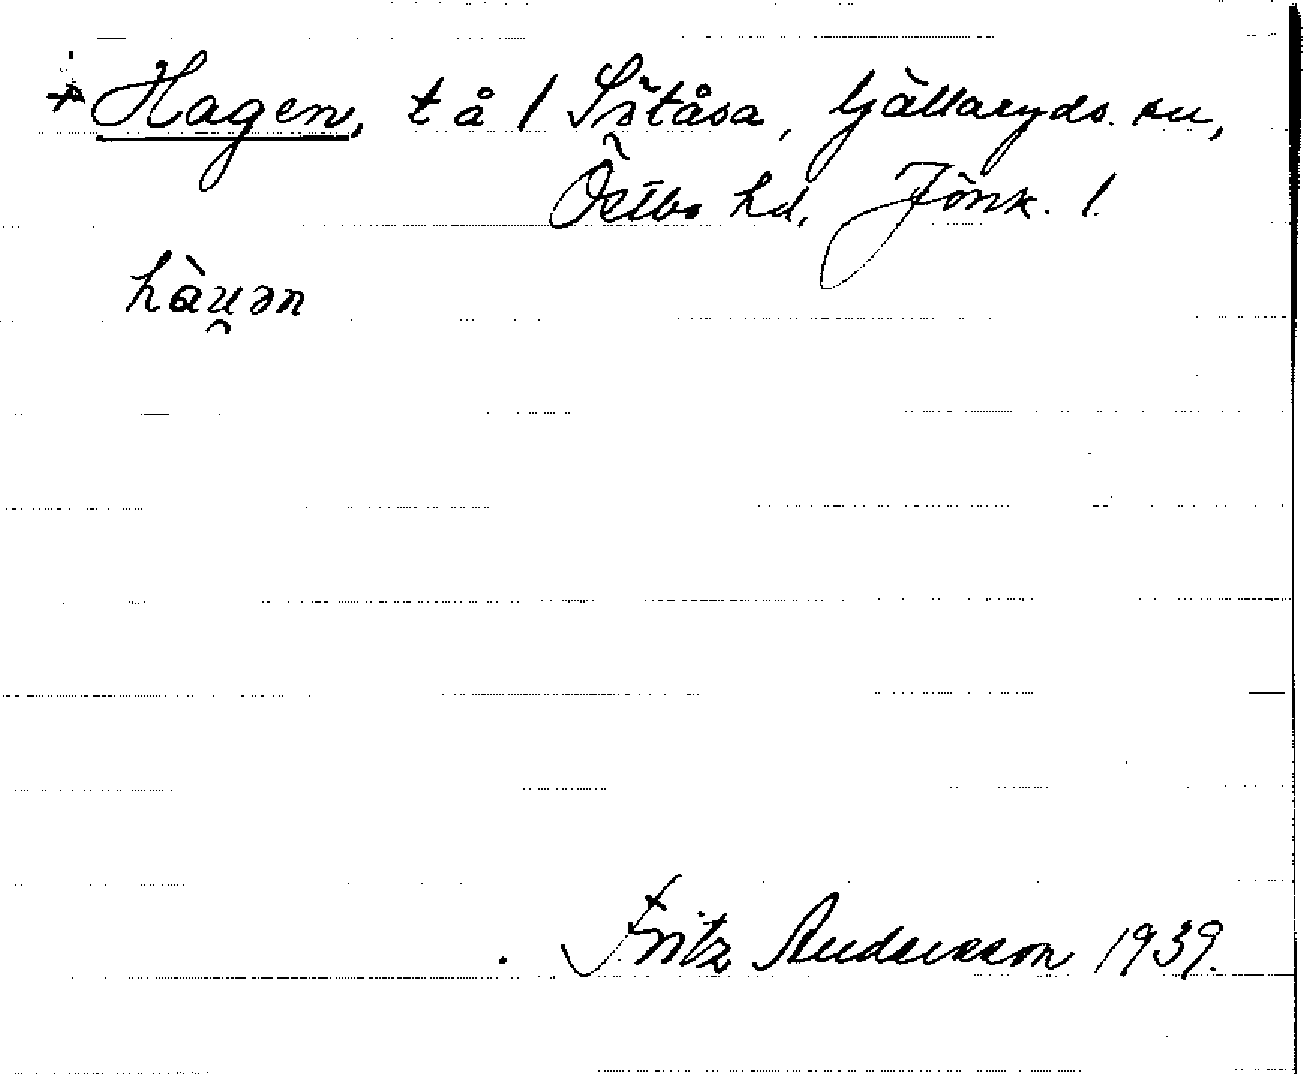 + Hagen, t å / Sītåsa, Gällaryds. sn,
Östbo hd, Jönk. l.
hàu̯ən
Fritz Andersson 1939.